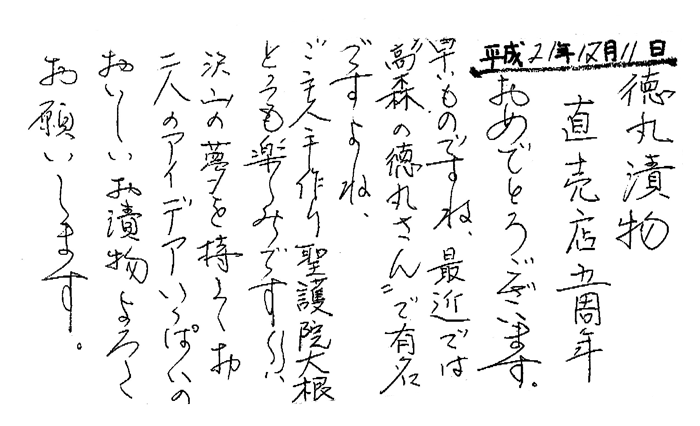 平成21年12月11日
徳丸漬物
直売店五周年
おめでとうございます。
早いものですね、最近では
"高森の徳丸さん"で有名
ですよね、
ご主人手作り聖護院大根
とても楽しみです
沢山の夢を持って お
二人のアイデアいっぱいの
おいしいお漬物よろしく
お願いします。